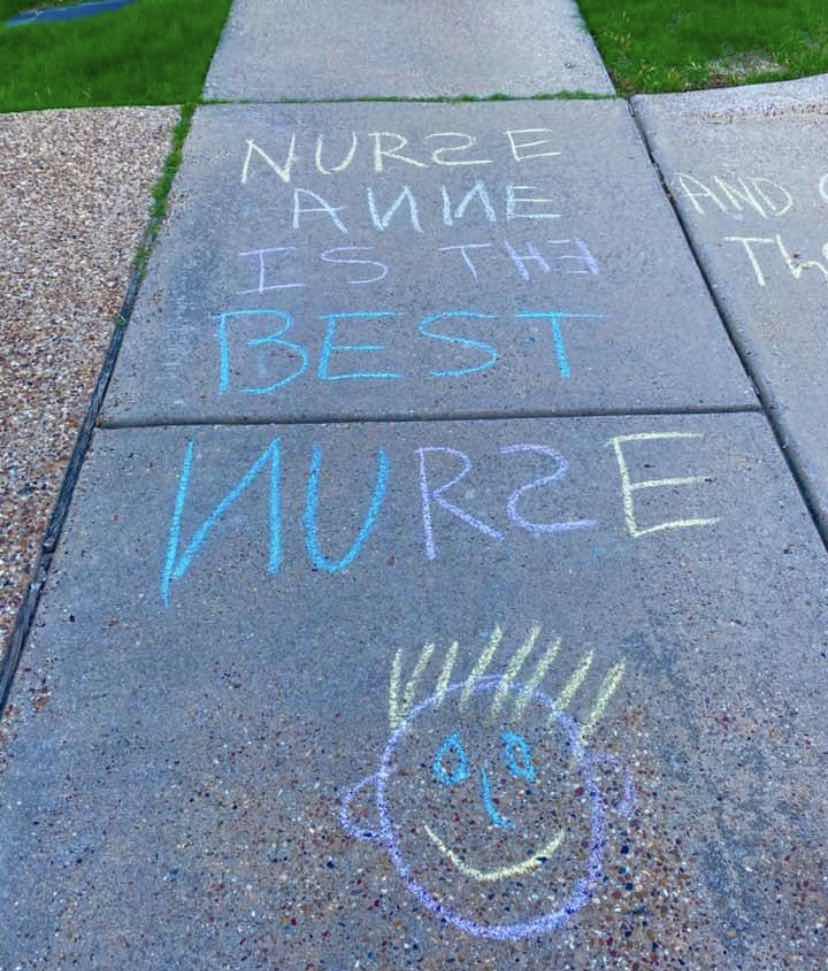 NURSE
ANNE
IS THE
BEST
NURSE
AND